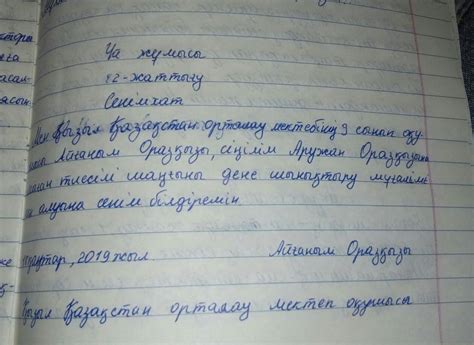 Үа жұмысы
82-жаттығу
Сенімхат
Мен, Қызыл Қазақстан орталау мектебінің 9 сынып оқу
Айғаным Оразқызы, сіңілім Аружан Оразқызына
тиесілі шаңғыны дене шынықтыру мұғалімі
алуына сенім білдіремін.
қаңтар, 2019 жыл. Айғаным Оразқызы
Қызыл Қазақстан орталау мектеп оқушысы